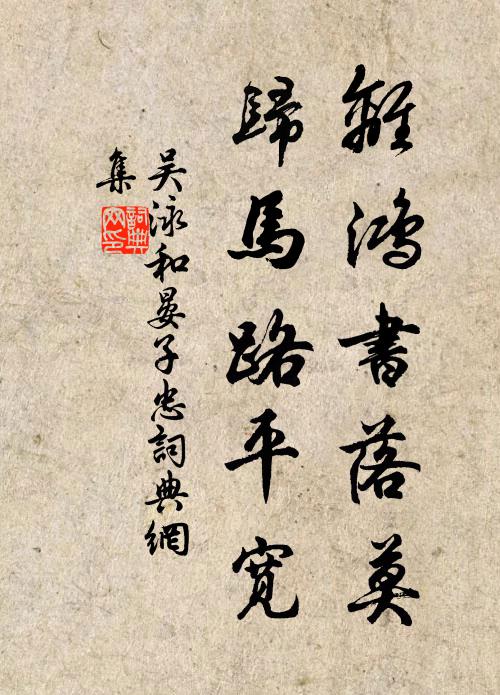 離鴻書落莫
歸馬路平寬
吴泳和晏子忠詞典網
集
詞典
网印